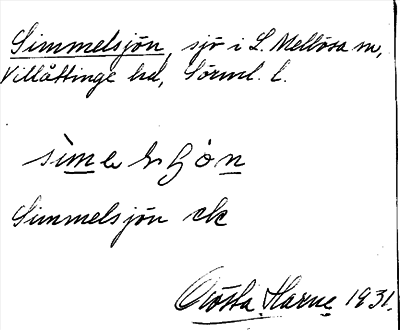 Simmelsjön, sjö i L. Mellösa sn,
Villåttinge hd, Sörml. l.
Simmelsjön
Gösta Harne 1931.